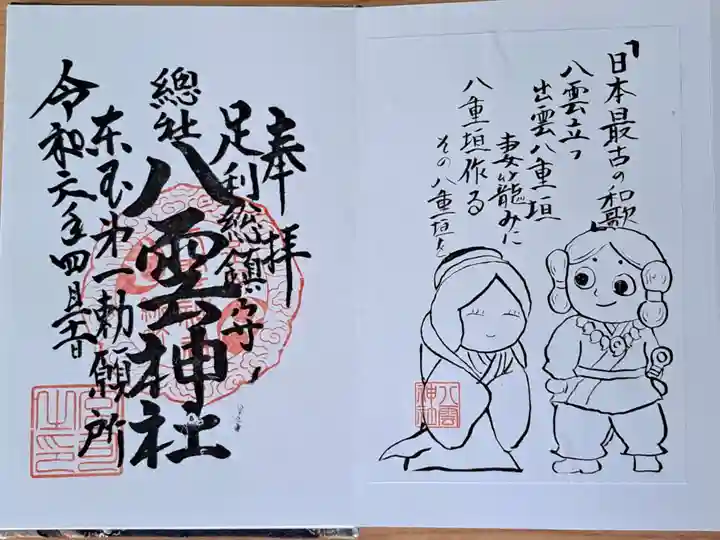 「日本最古の和歌」
八雲立つ
出雲八重垣
妻が籠みに
八重垣作る
その八重垣を
八雲神社
奉拝
足利総鎮守
總社
八雲神社
東国第一勅願所
令和六年四月